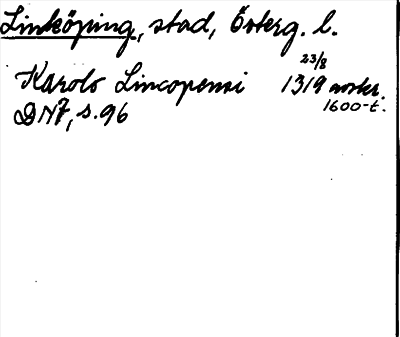 Linköping, stad, Österg. l.
23/8
Karolo Lincopensi 1319 avskr.
1600-t.
DN7, s. 96